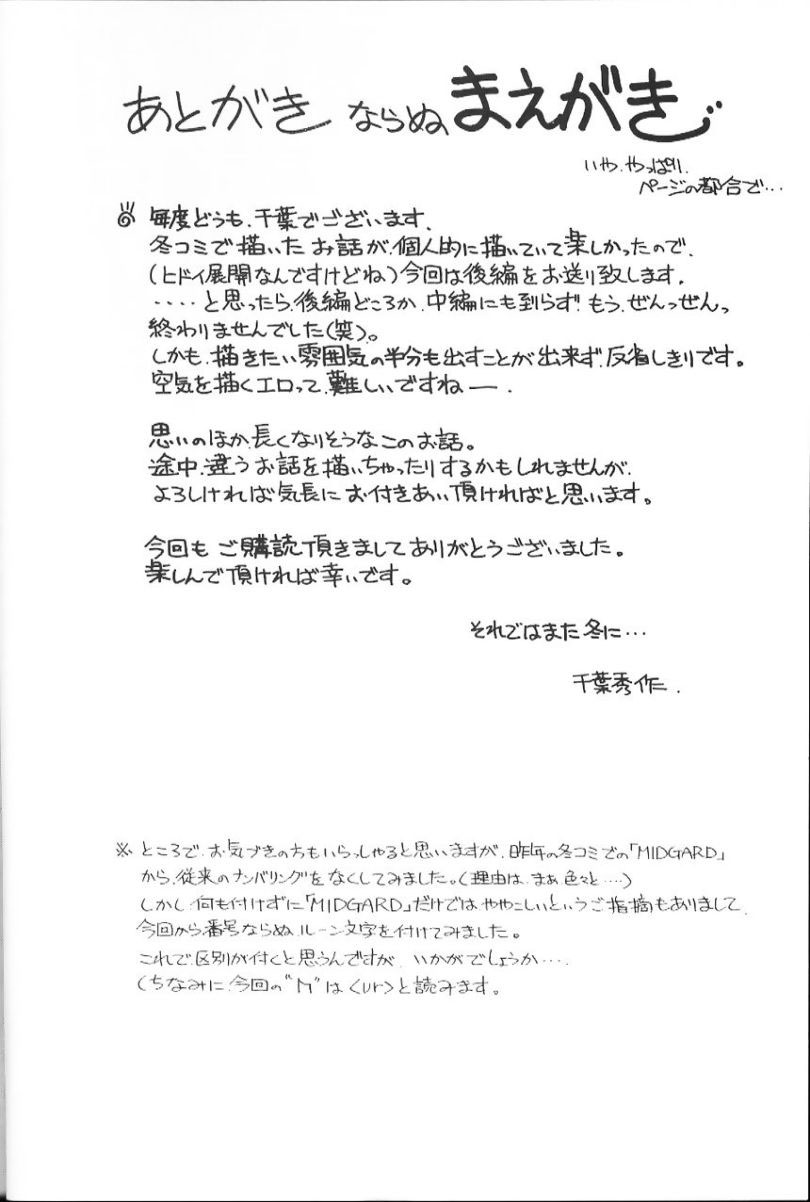 あとがき ならぬ、まえがき
いや、やっぱり、
ページの都合で…
毎度どうも、千葉でございます、
冬コミで描いた お話が、個人的に描いていて楽しかったので、
(ヒドイ展開なんですけどね)今回は後編をお送り致します。
‥‥と思ったら、後編どころか、中編にも到らず!もう、ぜんっぜんっ
終わりませんでした(笑)。
しかも、描きたい雰囲気の半分も出すことが出来ず、反省しきりです。
空気を描くエロって、難しいですねー.
思いのほか、長くなりそうなこのお話。
途中、違うお話を描いちゃったりするかもしれませんが、
よろしければ気長に お付きあい頂ければと思います。
今回も ご購読頂きましてありがとうございました。
楽しんで頂ければ幸いです。
それではまた冬に…
千葉秀作.
※ ところで、お気づきの方もいらっしゃると思いますが、昨年の冬コミでの「MIDGARD」
から、従来のナンバリングをなくしてみました。(理由は、まぁ色々と‥‥)
しかし何も付けずに「MIDGARD」だけでは ややこしいというご指摘もありまして、
今回から番号ならぬ、ルーン文字を付けてみました。
これで区別が付くと思うんですが、いかがでしょうか‥‥
(ちなみに、今回の"ᚢ"は<ur>と読みます。